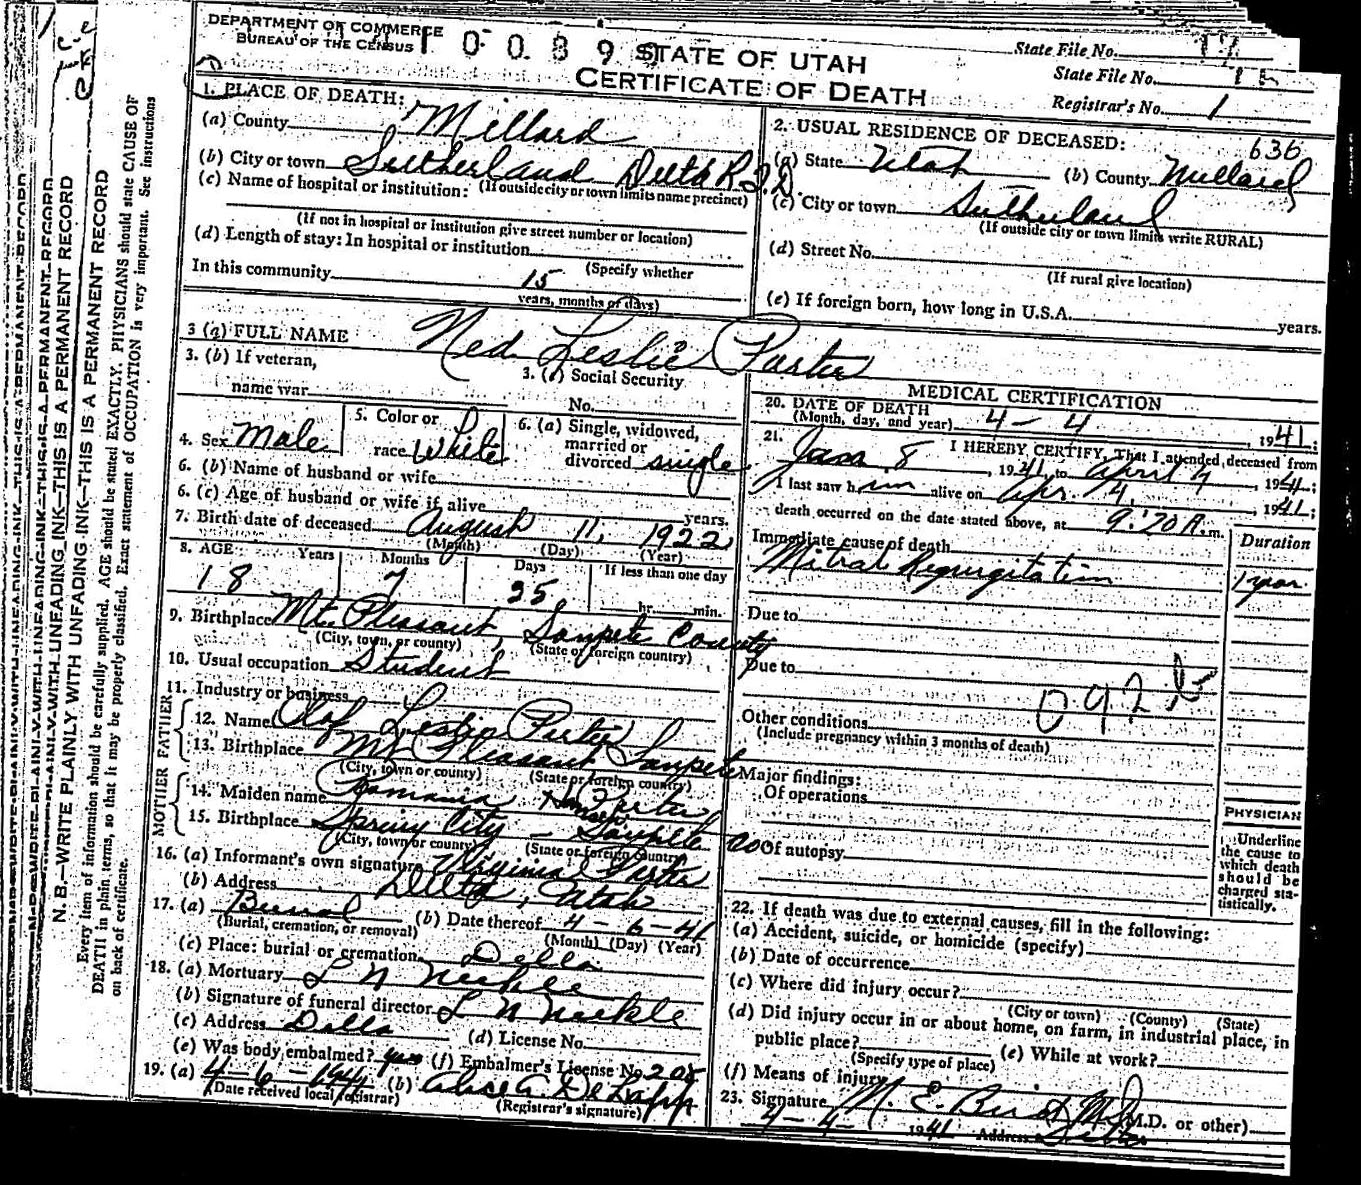 DEPARTMENT OF COMMERCE
BUREAU OF THE CENSUS
STATE OF UTAH
CERTIFICATE OF DEATH
State File No.
State File No.
Registrar's No. 1
1. PLACE OF DEATH:
(a) County Millard
(b) City or town Sutherland Delta R.F.D.
(If outside city or town limits name precinct)
(c) Name of hospital or institution:
(If not in hospital or institution give street number or location)
(d) Length of stay: In hospital or institution
(Specify whether
In this community 15
years, months or days)
2. USUAL RESIDENCE OF DECEASED: 636
(a) State Utah (b) County Millard
(c) City or town Sutherland
(If outside city or town limits write RURAL)
(d) Street No.
(If rural give location)
(e) If foreign born, how long in U.S.A. years.
3 (a) FULL NAME Ned Leslie Porter
3. (b) If veteran,
name war
3. (c) Social Security
No.
4. Sex Male
5. Color or
race White
6. (a) Single, widowed,
married or
divorced single
6. (b) Name of husband or wife
6. (c) Age of husband or wife if alive years.
7. Birth date of deceased August 11, 1922
(Month) (Day) (Year)
8. AGE Years Months Days If less than one day
18 7 25 hr. min.
9. Birthplace Mt. Pleasant, Sanpete County
(City, town, or county) (State or foreign country)
10. Usual occupation Student
11. Industry or business
FATHER
12. Name Olof Leslie Porter
13. Birthplace Mt Pleasant Sanpete
(City, town or county) (State or foreign country)
MOTHER
14. Maiden name Porter
15. Birthplace Spring City - Sanpete Co
(City, town or county) (State or foreign country)
16. (a) Informant's own signature Virginia Porter
(b) Address Delta, Utah
17. (a) Burial (b) Date thereof 4-6-41
(Burial, cremation, or removal) (Month) (Day) (Year)
(c) Place: burial or cremation Delta
18. (a) Mortuary L N Nickle
(b) Signature of funeral director L N Nickle
(c) Address Delta (d) License No.
(e) Was body embalmed? yes (f) Embalmer's License No. 205
19. (a) 4-6-1941 (b)
(Date received local registrar) (Registrar's signature)
MEDICAL CERTIFICATION
20. DATE OF DEATH
(Month, day, and year) 4-4, 1941;
21. I HEREBY CERTIFY, That I attended deceased from
Jan 8, 1941, to April 4, 1941;
I last saw him alive on Apr. 4, 1941;
death occurred on the date stated above, at 9:20 A.m.
Immediate cause of death Duration
Mitral Regurgitation 1 year
Due to
Due to
092 b
Other conditions
(Include pregnancy within 3 months of death)
Major findings:
Of operations
Of autopsy
PHYSICIAN
Underline
the cause to
which death
should be
charged sta-
tistically.
22. If death was due to external causes, fill in the following:
(a) Accident, suicide, or homicide (specify)
(b) Date of occurrence
(c) Where did injury occur?
(City or town) (County) (State)
(d) Did injury occur in or about home, on farm, in industrial place, in
public place? (e) While at work?
(Specify type of place)
(f) Means of injury
23. Signature M. E. Bird M.D. (M.D. or other)
4-4- 1941 Address Delta
N. B.—WRITE PLAINLY WITH UNFADING INK—THIS IS A PERMANENT RECORD
Every item of information should be carefully supplied. AGE should be stated EXACTLY. PHYSICIANS should state CAUSE OF
DEATH in plain terms, so that it may be properly classified. Exact statement of OCCUPATION is very important. See instructions
on back of certificate.